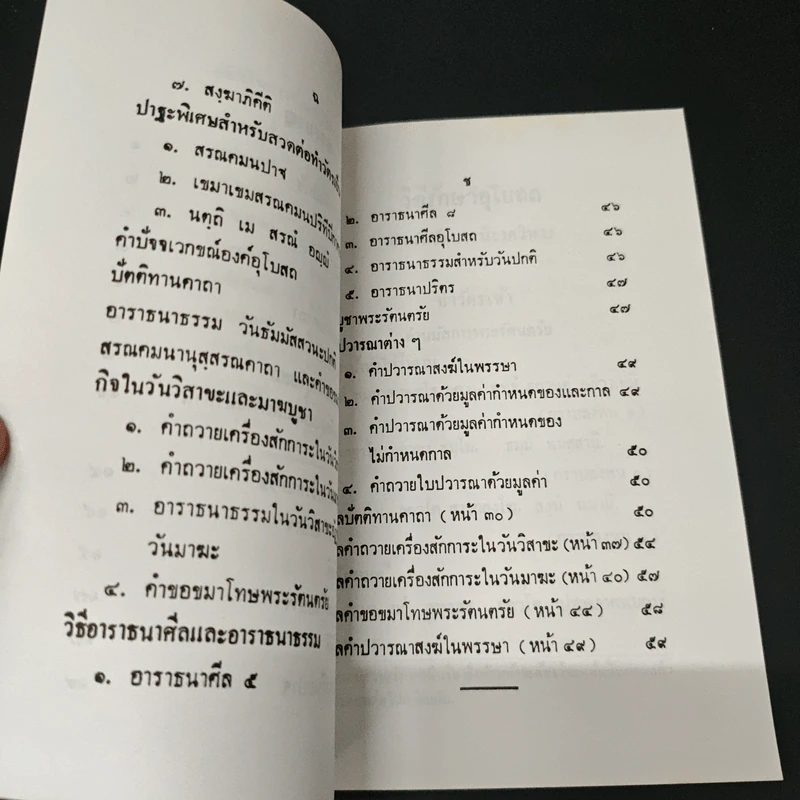 ฉ
๗. สงฺฆาภิคีติ
ปาฐะพิเศษสำหรับสวดต่อทำวัตร
๑. สรณคมนปาฐ
๒. เขมาเขมสรณคมนปริทีปิ
๓. นตฺถิ เม สรณํ อญฺญํ
คำปัจจเวกขณ์องค์อุโบสถ
ปัตติทานคาถา
อาราธนาธรรม วันธัมมัสสวนะปกติ
สรณคมนานุสฺสรณคาถา และคำขอ
กิจในวันวิสาขะและมาฆบูชา
๑. คำถวายเครื่องสักการะในวัน
๒. คำถวายเครื่องสักการะในวัน
๓. อาราธนาธรรมในวันวิสาขะ
วันมาฆะ
๔. คำขอขมาโทษพระรัตนตรัย
วิธีอาราธนาศีลและอาราธนาธรรม
๑. อาราธนาศีล ๕
ช
๒. อาราธนาศีล ๘ ๔๖
๓. อาราธนาศีลอุโบสถ ๔๖
๔. อาราธนาธรรมสำหรับวันปกติ ๔๖
๕. อาราธนาปริตร ๔๗
บูชาพระรัตนตรัย ๔๗
ปวารณาต่าง ๆ
๑. คำปวารณาสงฆ์ในพรรษา ๔๙
๒. คำปวารณาด้วยมูลค่ากำหนดของและกาล ๔๙
๓. คำปวารณาด้วยมูลค่ากำหนดของ
ไม่กำหนดกาล ๕๐
๔. คำถวายใบปวารณาด้วยมูลค่า ๕๐
ลปัตติทานคาถา (หน้า ๓๐) ๕๐
ลคำถวายเครื่องสักการะในวันวิสาขะ (หน้า ๓๗) ๕๔
ลคำถวายเครื่องสักการะในวันมาฆะ (หน้า ๔๐) ๕๗
ลคำขอขมาโทษพระรัตนตรัย (หน้า ๔๔) ๕๘
ลคำปวารณาสงฆ์ในพรรษา (หน้า ๔๙) ๕๙